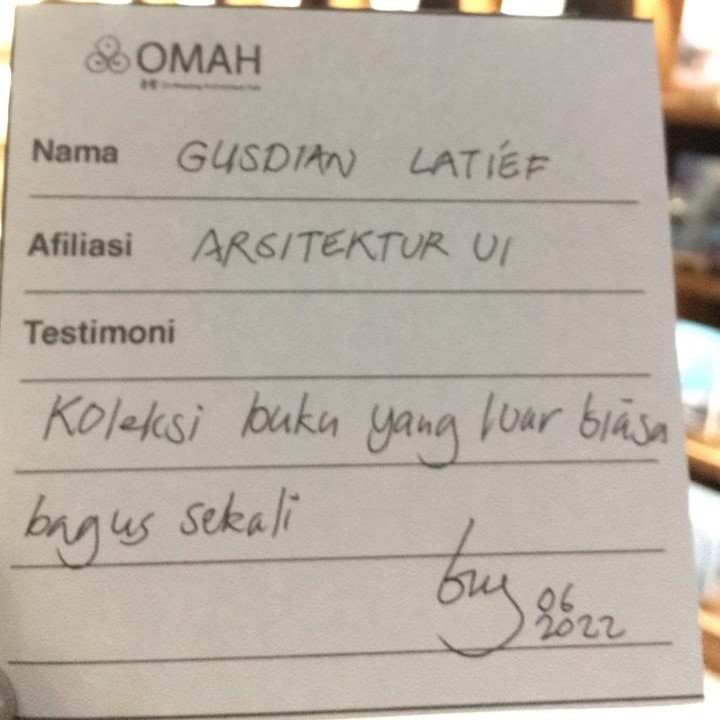 OMAH
Nama GUSDIAN LATIÉF
Afiliasi ARSITEKTUR UI
Testimoni
Koleksi buku yang luar biasa
bagus sekali
06
2022